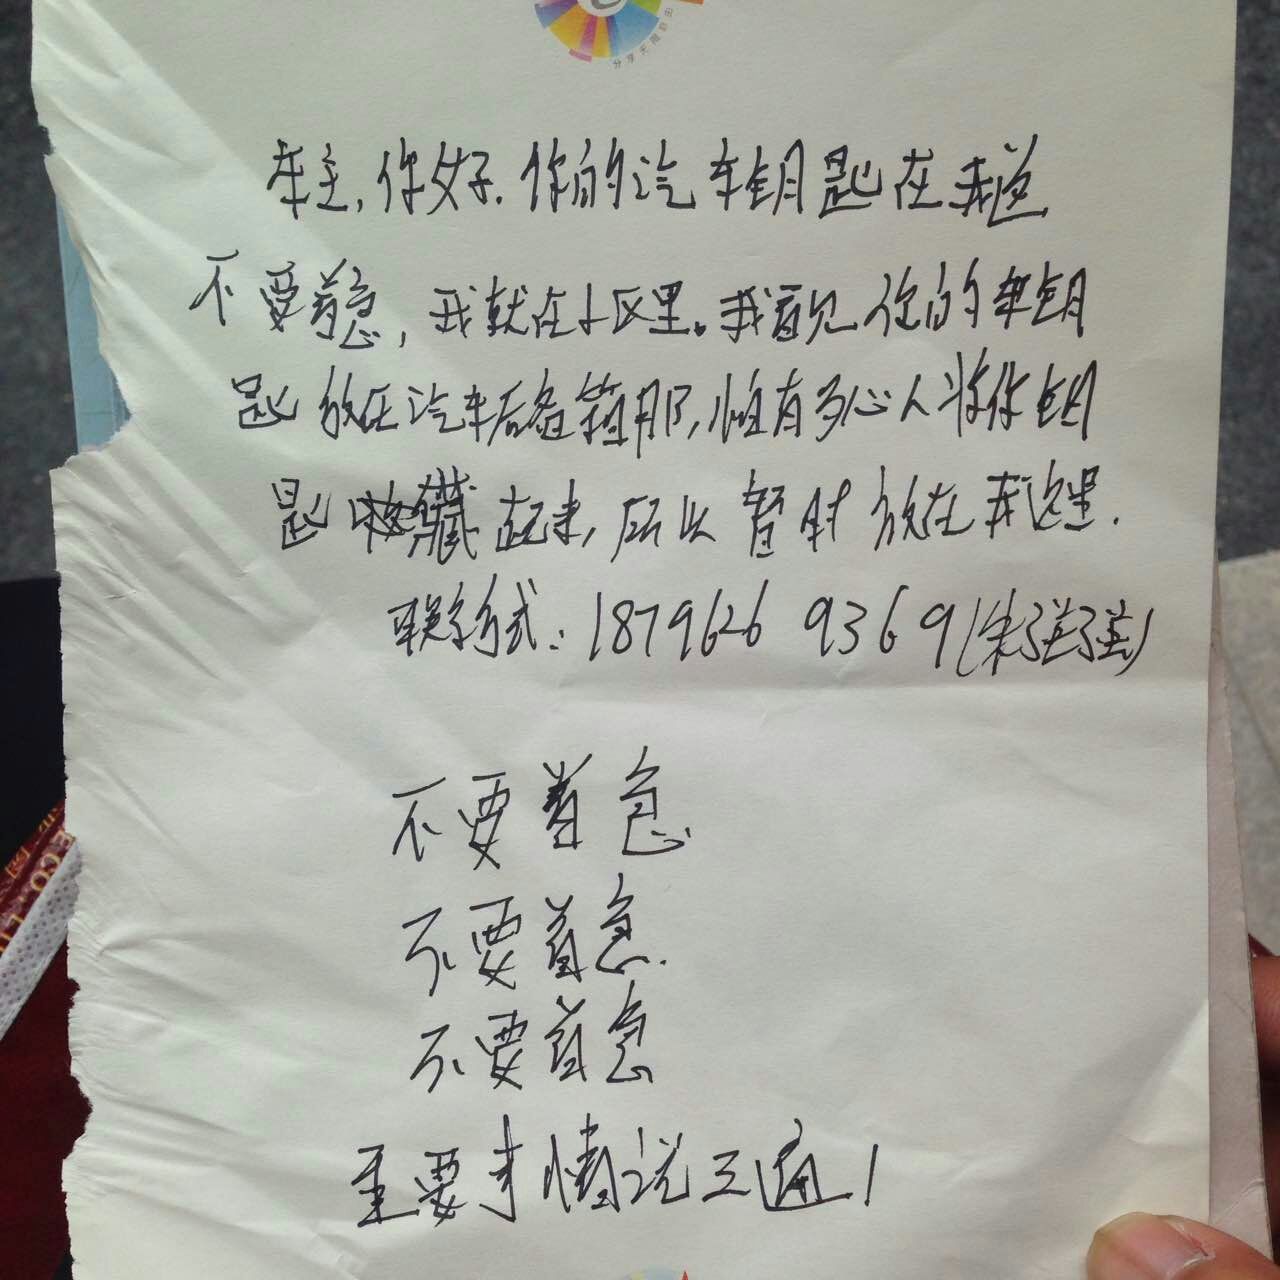 分享无限自由
车主,你好.你的汽车钥匙在我这
不要着急,我就在小区里。我看见你的车钥
匙放在汽车后备箱那,怕有多心人将你钥
匙 藏起来,所以暂时放在我这里.
联系方式:187 9626 9369(朱强强)
不要着急
不要着急.
不要着急
重要事情说三遍!